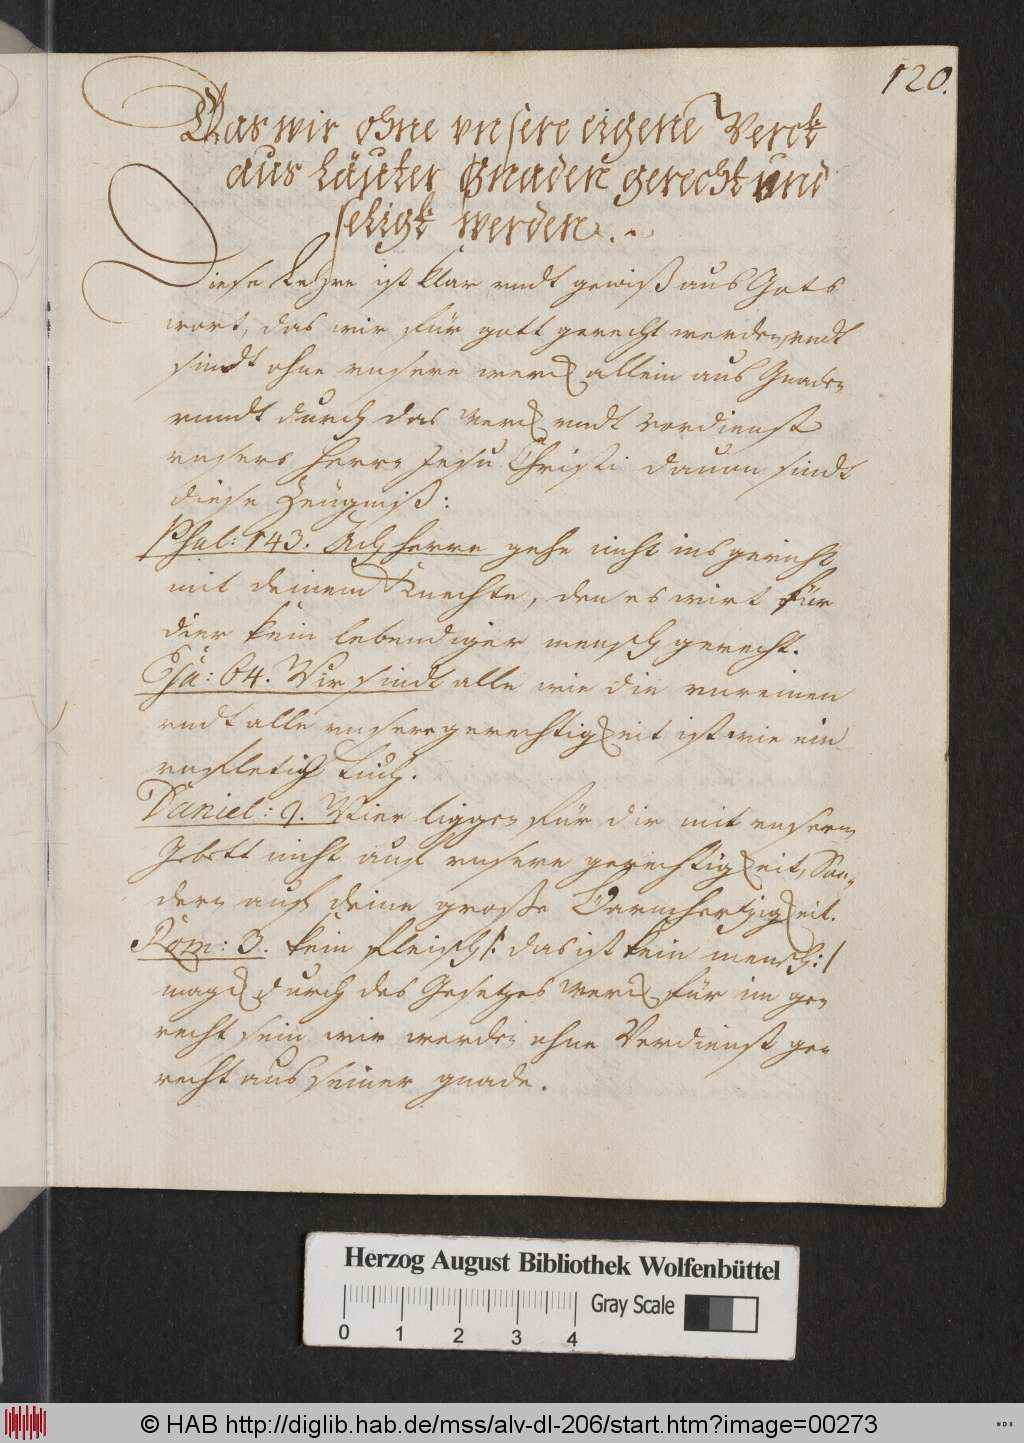 120.
Das wir ohne vnsere eigene Werck
aus Läuter Gnaden gerecht und
seligk werden.
Diese Lehre ist klar vndt gewiß aus Gots
wort, das wir für gott gerecht werden vndt
sindt ohne vnsere werck allein aus Gnaden
vnndt durch das werck vndt vordienst
vnsers Herrn Jesu Christi dauon sindt
diese Zeügniß:
Psal: 143. Ach herre gehe nicht ins gericht
mit deinem Knechte, den es wirt für
dier kein lebendiger mensch gerecht.
Esa: 64. Wir sindt alle wie die vnreinen
vndt alle vnsere gerechtigkeit ist wie ein
vnfletich tuch.
Daniel: 9. Wier liggen für dir mit vnserm
Gebett nicht auf vnsere gerechtigkeit, Son,
dern auf deine große Barmhertzigkeit.
Rom: 3. kein fleisch /: das ist kein mensch :/
magk durch des Gesetzes werck für im ge,
recht sein wir werden ohne Verdienst ge,
recht aus seiner gnade.
Herzog August Bibliothek Wolfenbüttel
Gray Scale
0 1 2 3 4
© HAB http://diglib.hab.de/mss/alv-dl-206/start.htm?image=00273